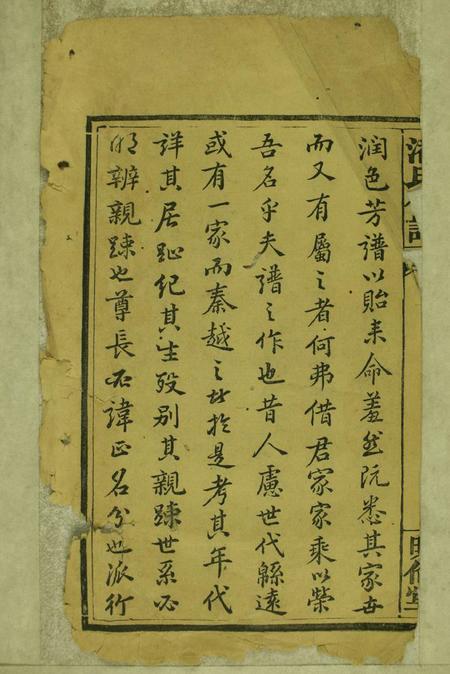 润色芳譜以貽来命羞然阮悉其家世
而又有屬之者何弗借君家家乘以榮
吾名乎夫譜之作也昔人慮世代緜遠
或有一家而秦越之者於是考其年代
詳其居趾纪其生殁别其親踈世系必
明辨親踈也尊長不諱正名分也派行